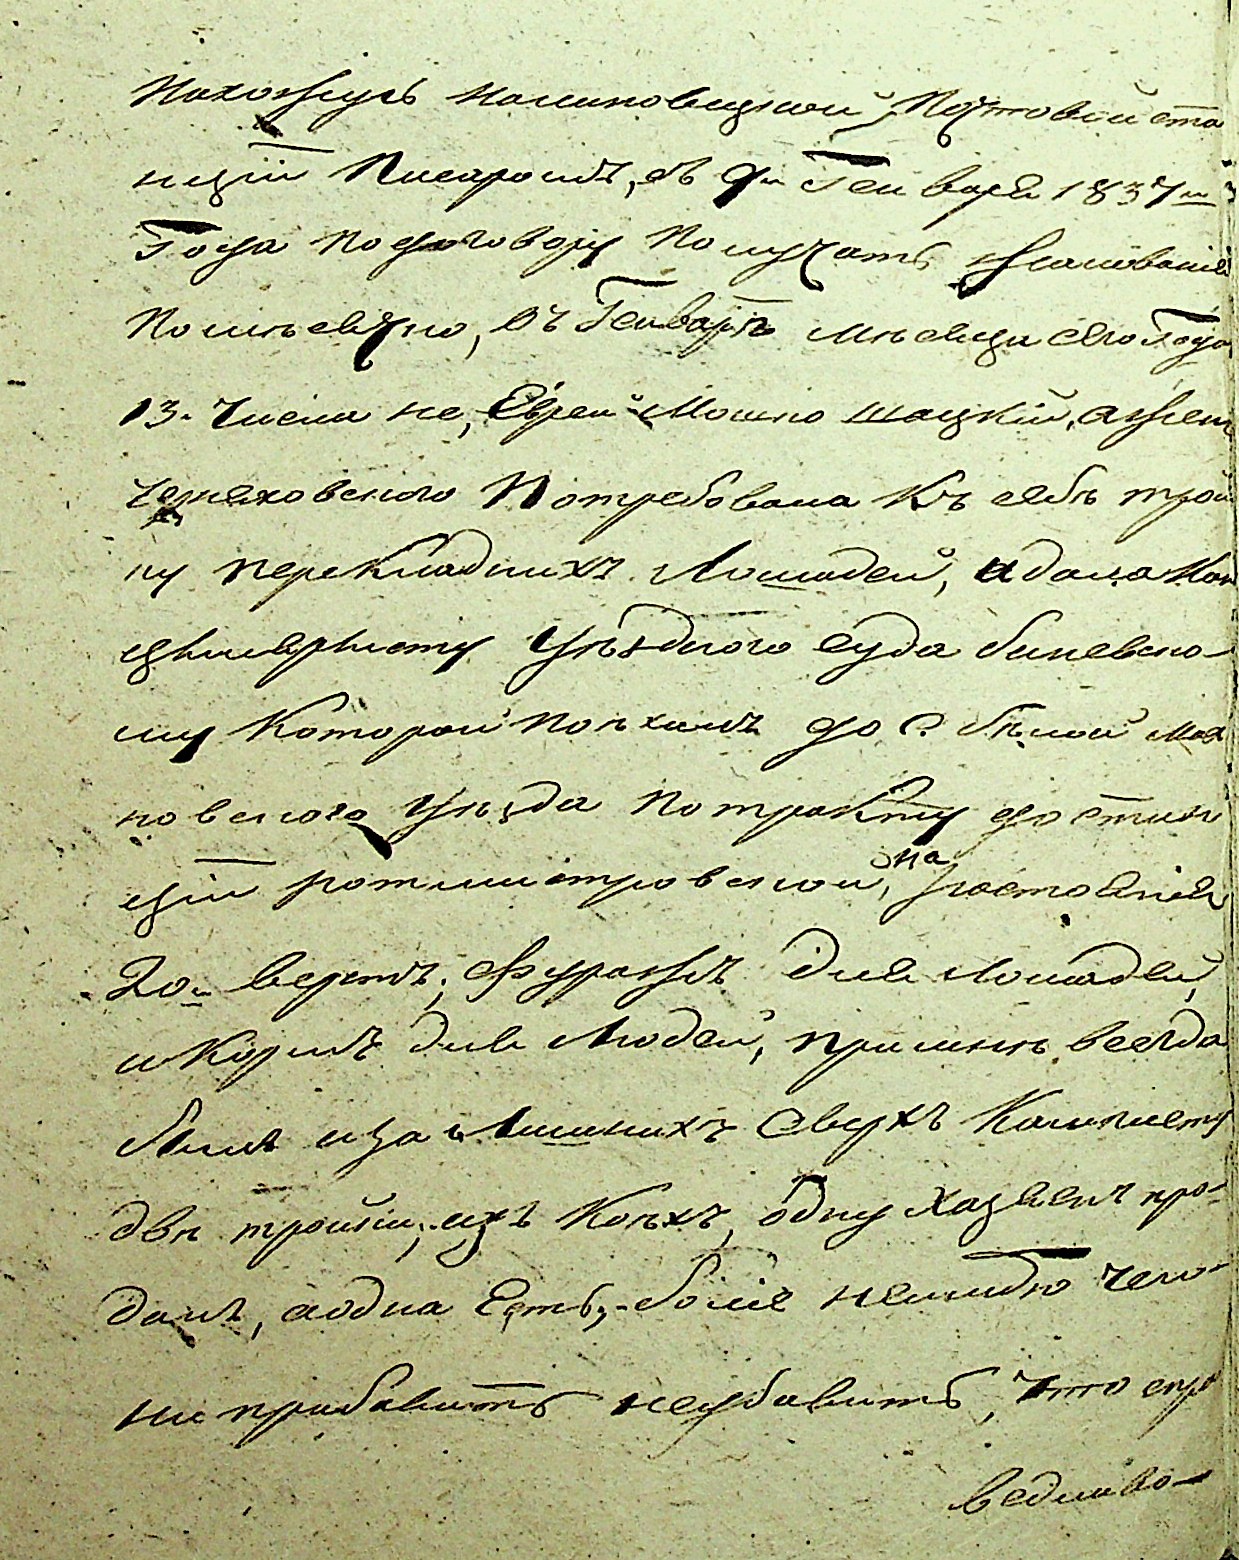 Нахожусь налиповецкой Почтовой ста
нціи Писаромъ, съ 9го Генваря 1837го
Года по договору получать жалованіе
помѣсечно, въ Генварѣ мѣсеца сего Года
13. Числа не, Еврей Мошко Шацкій, а жена
Черняховского Потребовала Къ себѣ трой
ку перекладныхъ Лошадей, адала Кан
целяристу Уѣздного суда
му Которой поѣхалъ до с. Бѣлой Мах
новского Уѣзда по тракту до стан
ціи ротмистровской, на ростоянія
20ть верстъ; Фуражъ для лошадей,
и Кормъ для Людей, при мнѣ всегда
былъ, и за Лишнихъ сверхъ Комплету
двѣ тройки, изъ Коихъ, одну хазяенъ про-
далъ, а одна Есть, болѣе немибю чего-
ни прибавить неубавить, Что спра
ведливо-